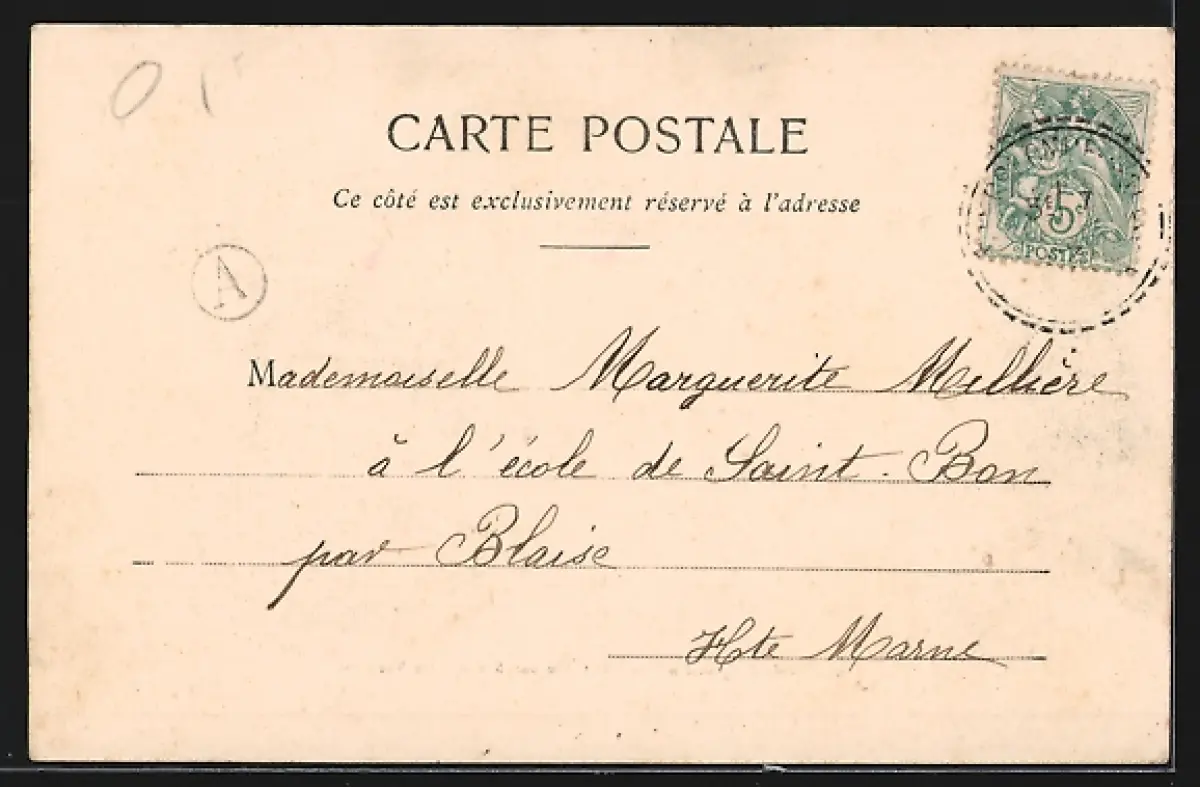 CARTE POSTALE
Ce côté est exclusivement réservé à l'adresse
5
POSTES
A
Mademoiselle Marguerite Millière
à l'école de Saint-Bon
par Blaise
Hte Marne